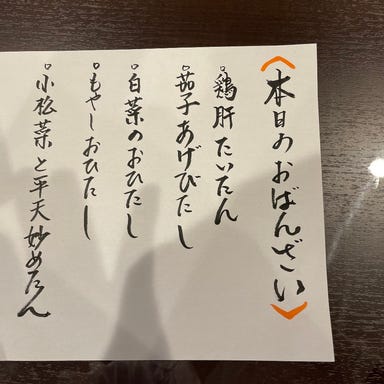 〈本日のおばんざい〉
○鶏肝たいたん
○茄子あげびたし
○白菜のおひたし
○もやしおひたし
○小松菜と平天炒めたん